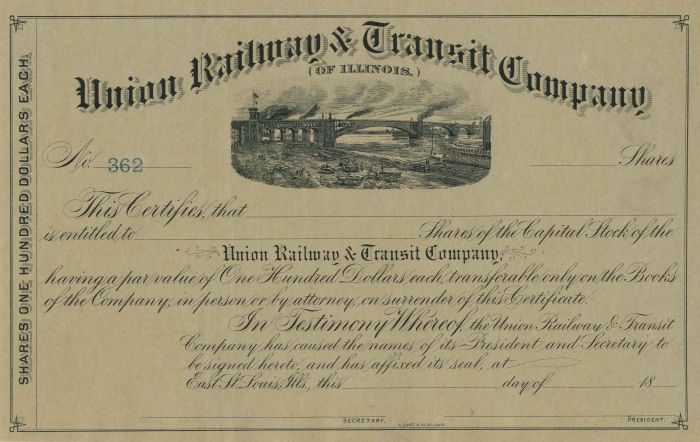 Union Railway & Transit Company
(OF ILLINOIS.)
SHARES ONE HUNDRED DOLLARS EACH.
No. 362 Shares
This Certifies, that
is entitled to Shares of the Capital Stock of the
Union Railway & Transit Company,
having a par value of One Hundred Dollars each, transferable only on the Books
of the Company, in person or by attorney, on surrender of this Certificate.
In Testimony Whereof, the Union Railway & Transit
Company has caused the names of its President and Secretary to
be signed hereto, and has affixed its seal, at
East St. Louis, Ills., this day of 18
SECRETARY. PRESIDENT.